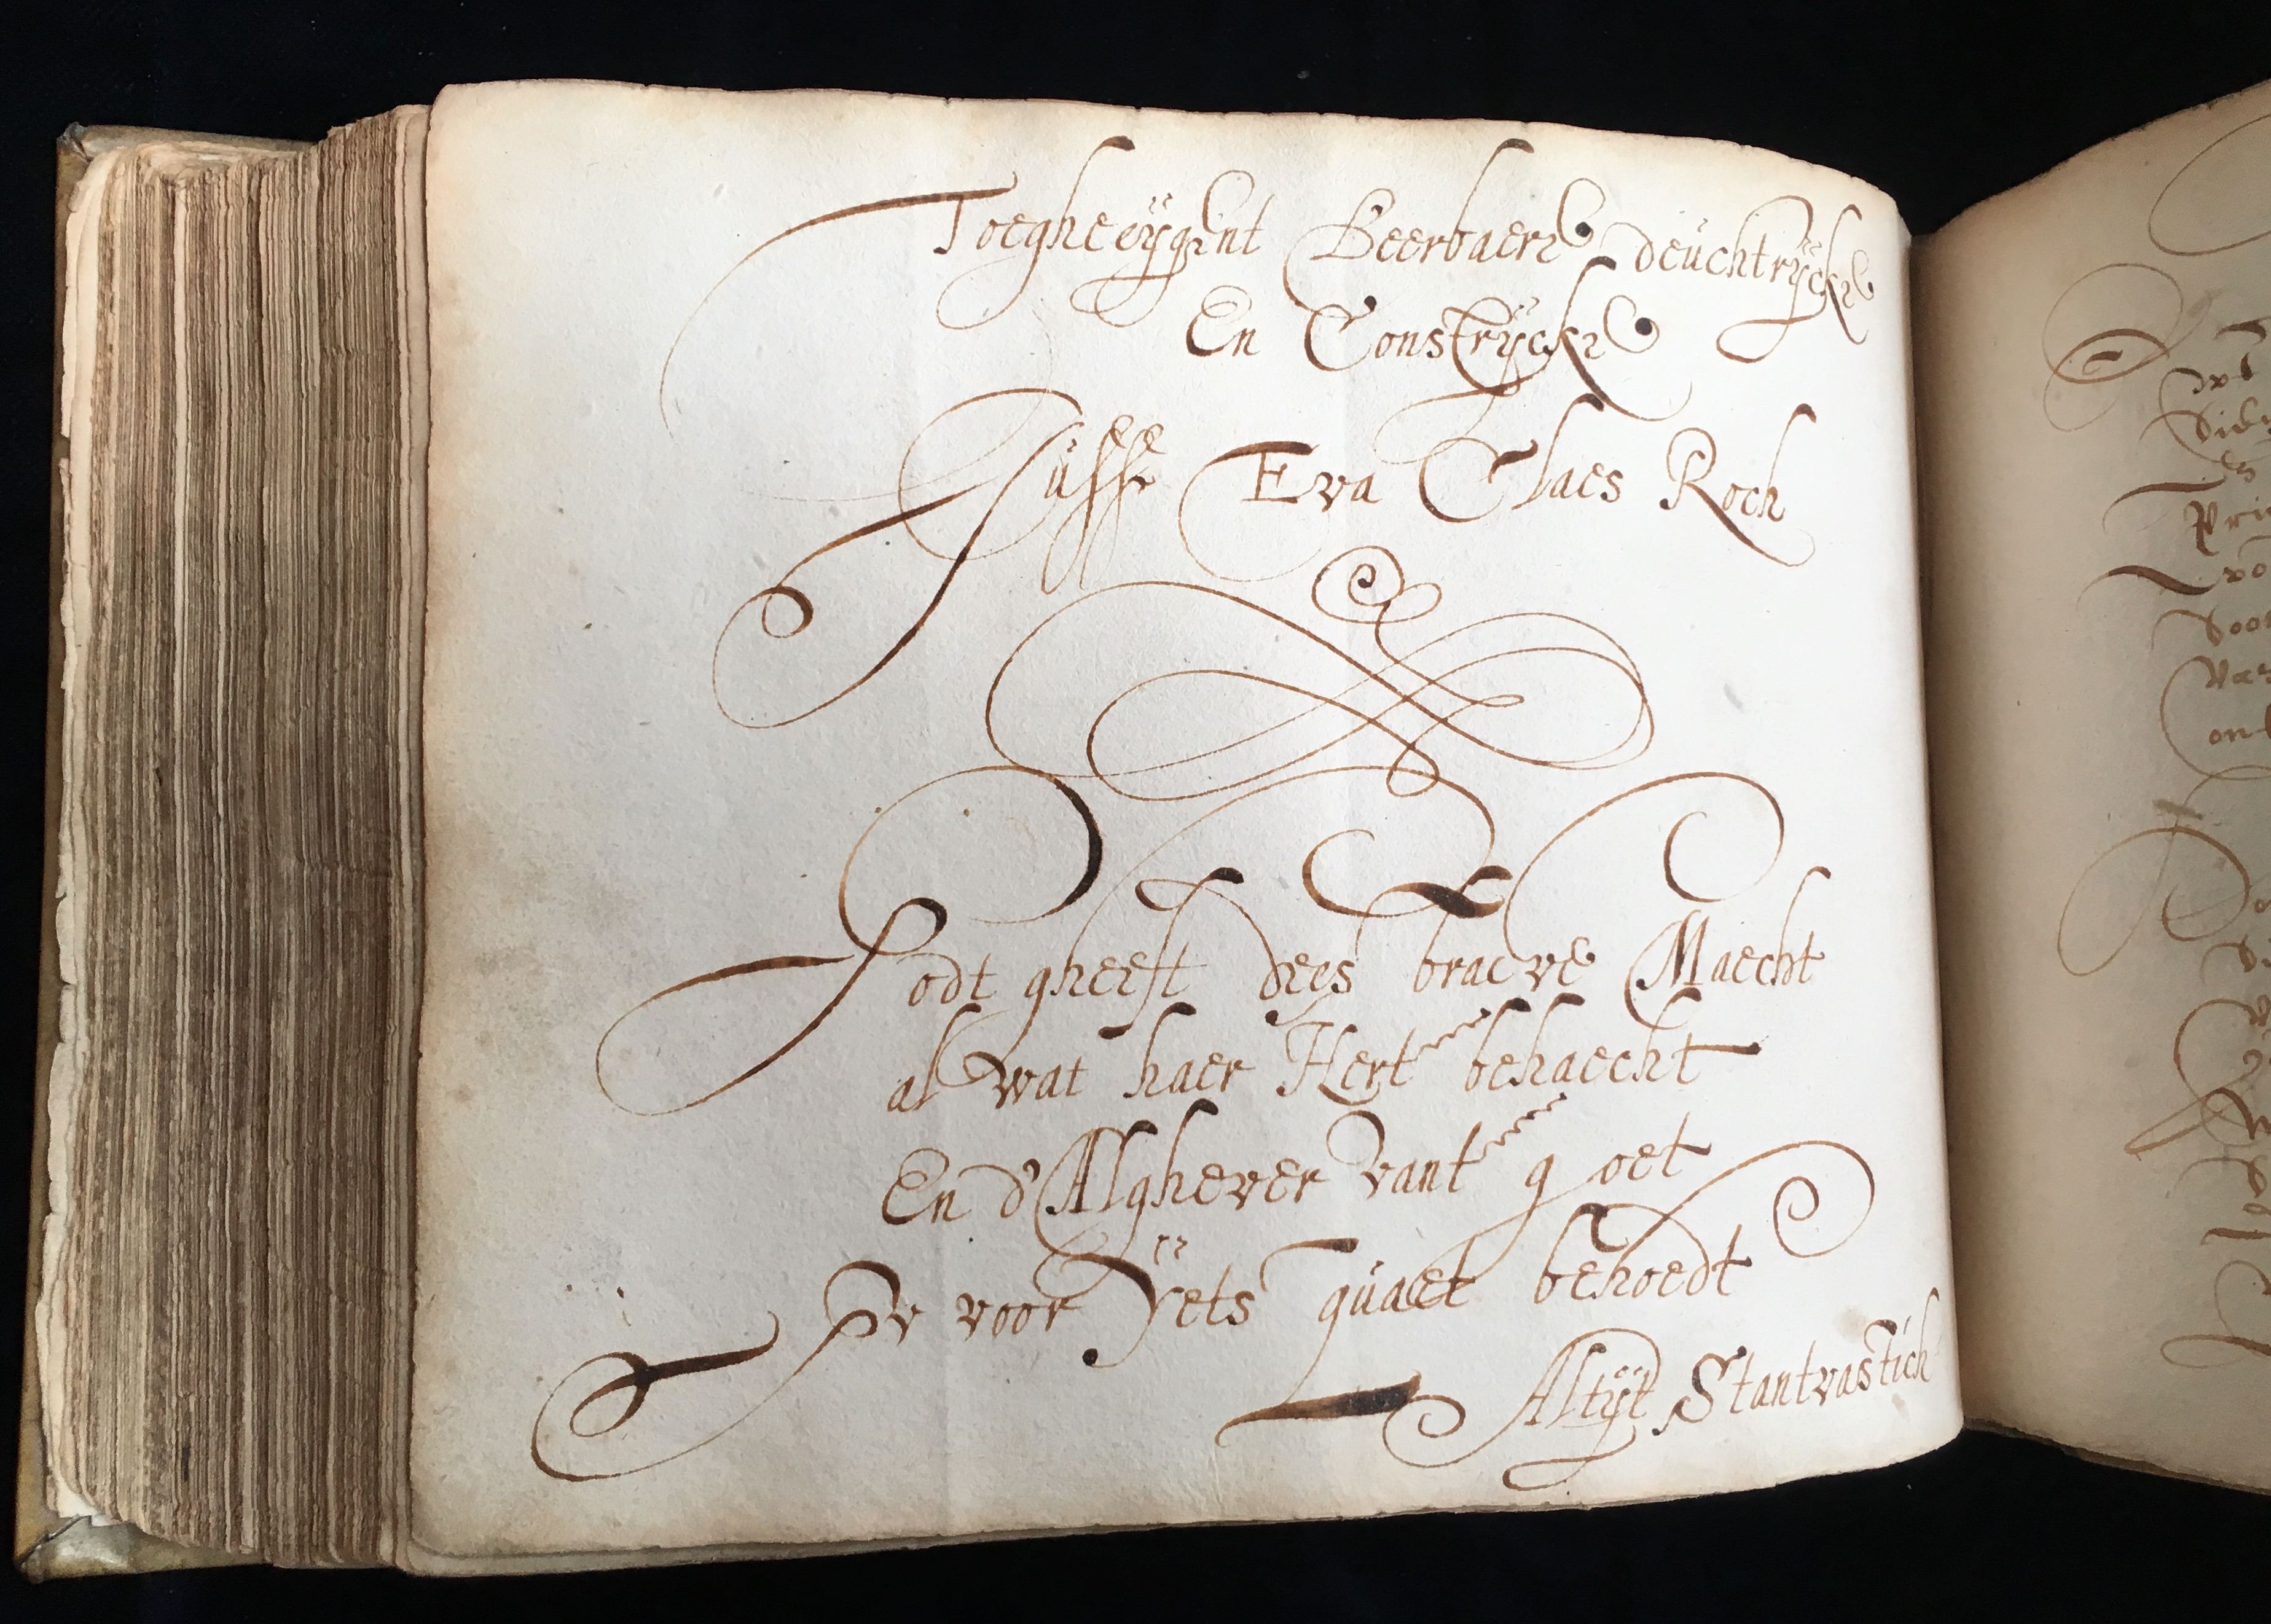 Toegheeÿgent Eerbaere deuchtrÿcke
En Constrÿcke
Juffe Eva Claes Roch
Godt gheeft dees braeve Maecht
al wat haer Hert behaecht
En d'Alghever vant goet
Hv voor ÿets quaet behoedt
Altÿt Stantvastich